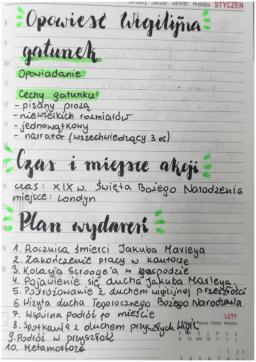 STYCZEŃ
Opowieść Wigilijna
gatunek
Opowiadanie
Cechy gatunku
- pisany prozą
- niewielkich rozmiarów
- jednowątkowy
- narator (wszechwiedzący 3 os)
Czas i miejsce akcji
czas: XIX w. Święta Bożego Narodzenia
miejsce: Londyn
Plan wydarzeń
1. Rocznica śmierci Jakuba Marleya
2. Zakończenie pracy w kantorze
3. Kolacja Scrooge'a w gospodzie
4. Pojawienie się ducha Jakuba Marleya
5. Podróżowanie z duchem wigilijnej przeszłości
6. Wizyta ducha Tegorocznego Bożego Narodzenia
7. Wspólna podróż po mieście
8. Spotkanie z duchem przyszłych Wigilii
9. Podróż w przyszłość
10. Metamorfoza
LUTY